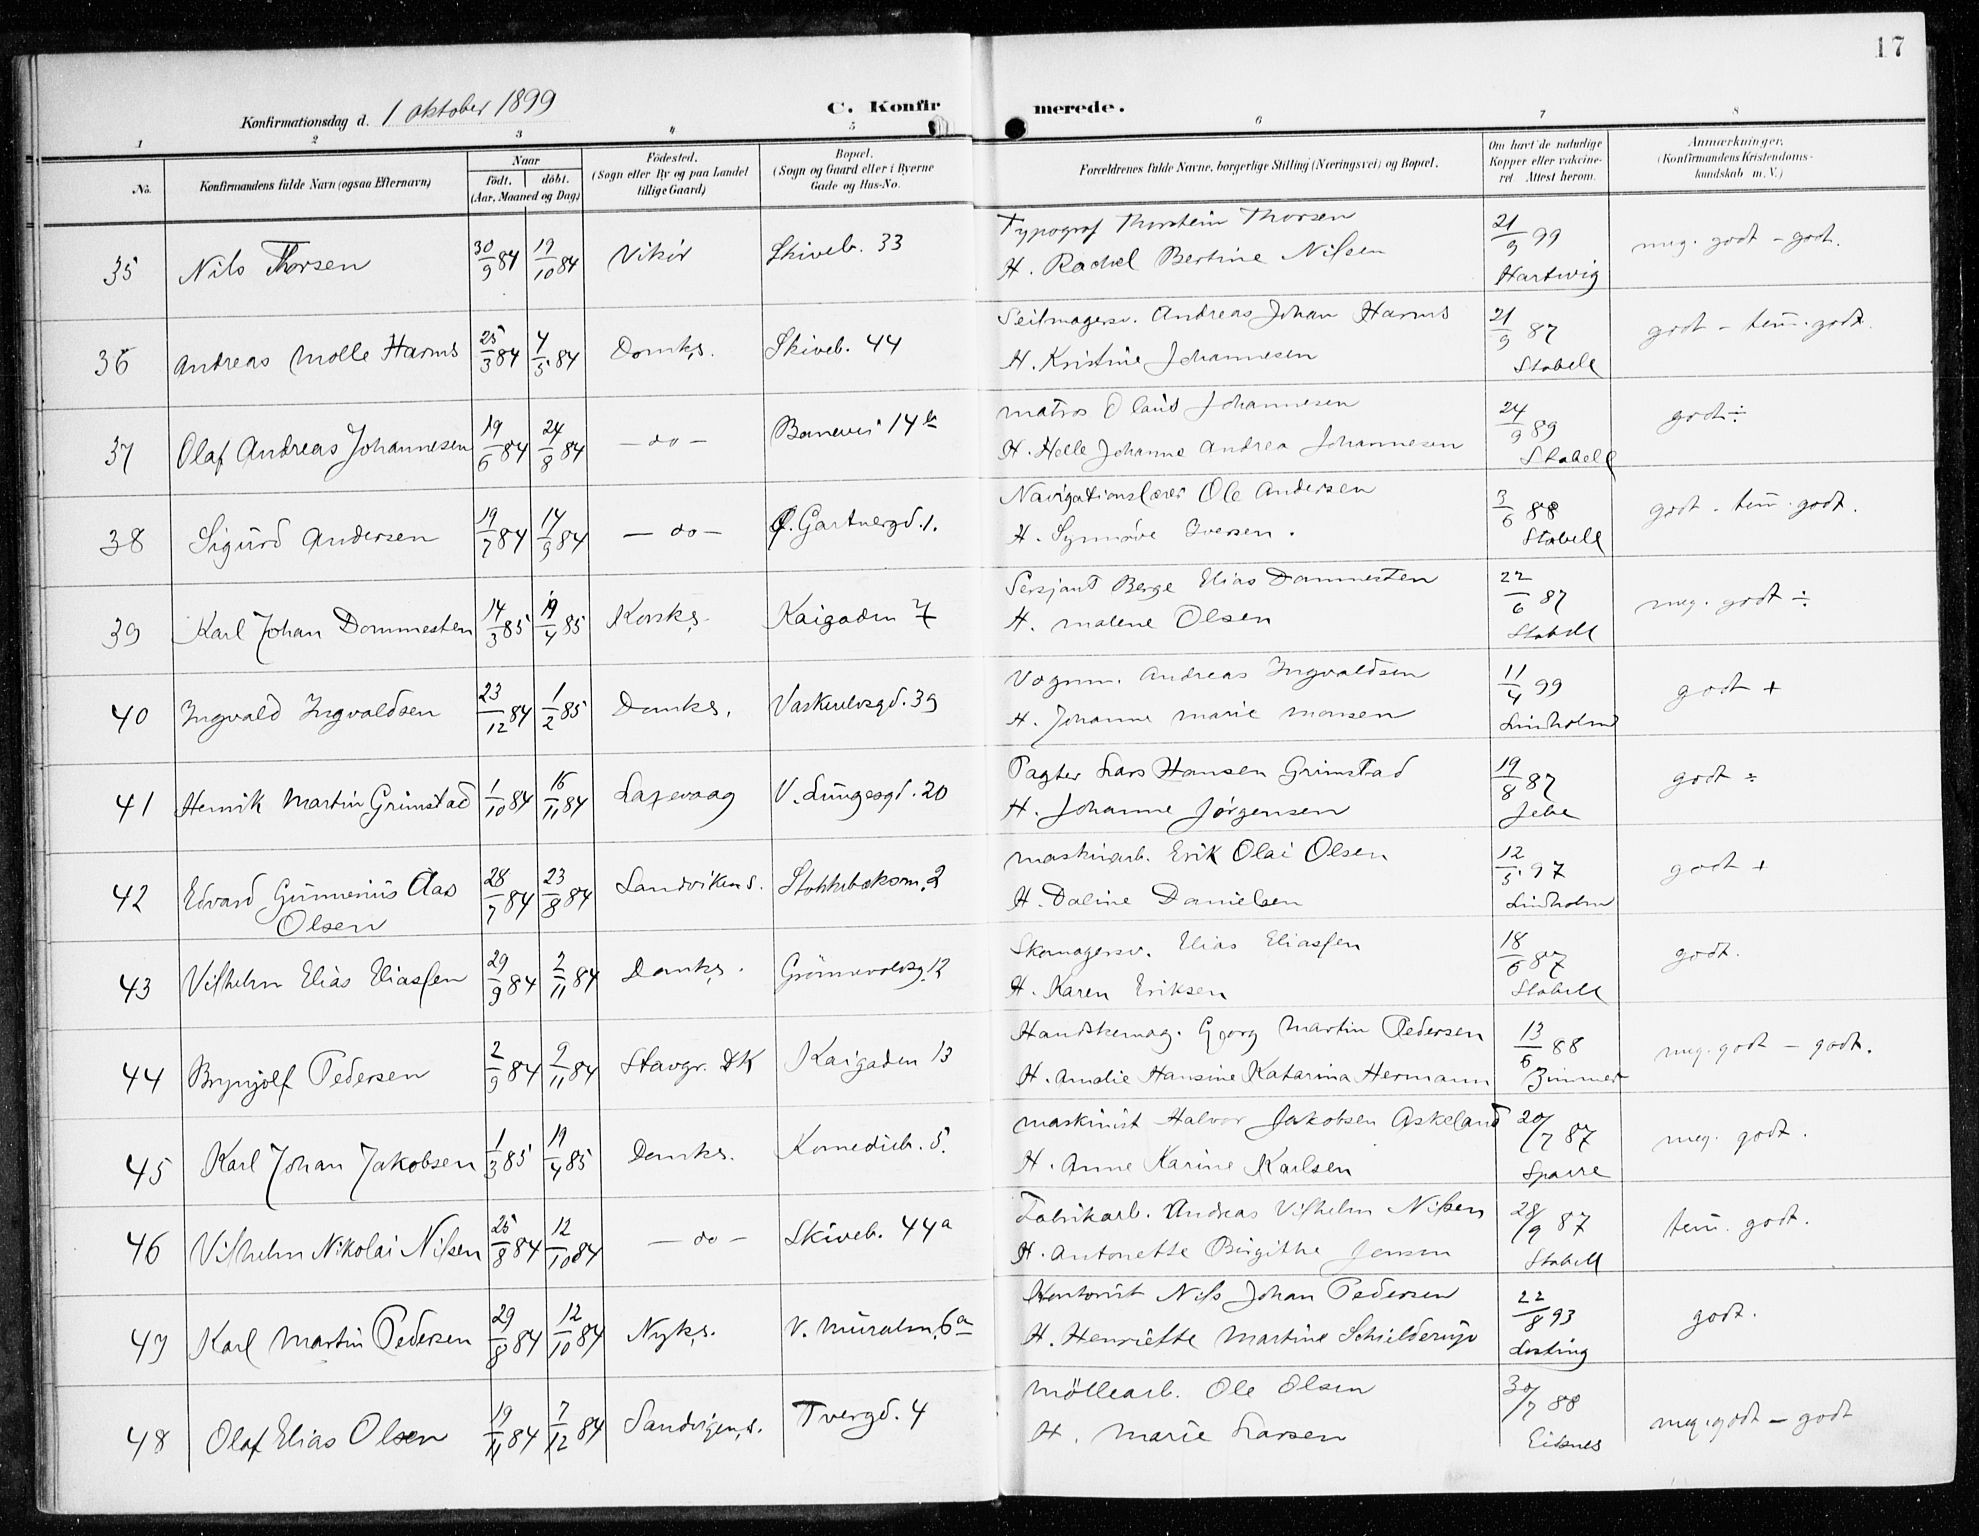 17
Konfirmationsdag d. 1 oktober 1899
C. Konfirmerede.
1 2 3 4 5 6 7 8
No.
Konfirmandens fulde Navn (ogsaa Efternavn)
Naar
født. døbt.
(Aar, Maaned og Dag)
Fødested.
(Sogn eller By og paa Landet
tillige Gaard)
Bopæl.
(Sogn og Gaard eller i Byerne
Gade og Hus-No.
Forældrenes fulde Navne, borgerlige Stilling (Næringsvei) og Bopæl.
Om havt de naturlige
Kopper eller vakcine-
ret Attest herom.
Anmærkninger.
(Konfirmandens Kristendoms-
kundskab m. V.)
35 Nils Thorsen 30/9 84 19/10 84 Vikør Skiveb. 33
Typograf Thorstein Thorsen
H. Rachel Bertine Nilsen
21/9 99
Hartwig
meg. godt - godt.
36 Andreas Molle Harms 25/3 84 4/5 84 Domks. Skiveb. 44
Seilmagersv. Andreas Johan Harms
H. Kristine Johannesen
21/9 87
Stabell
godt - tem. godt.
37 Olaf Andreas Johannesen 19/6 84 24/8 84 - do - Banevei 14 b
Matros Olaus Johannesen
H. Helle Johanne Andrea Johannesen
24/9 89
Stabell
godt ÷
38 Sigurd Andersen 19/7 84 14/9 84 - do - Ø. Gartnergd. 1.
Navigationslærer Ole Andersen
H. Synnøve Iversen.
3/6 88
Stabell
godt - tem. godt.
39 Karl Johan Dommesten 14/3 85 19/4 85 Korsks. Kaigaden 7
Sersjant Berge Elias Dommesten
H. Malene Olsen
22/6 87
Stabell
meg. godt ÷
40 Ingvald Ingvaldsen 23/12 84 1/2 85 Domks. Vaskerelvsgd. 39
Vognm. Andreas Ingvaldsen
H. Johanne Marie Monsen
11/4 99
Lindholm
godt +
41 Henrik Martin Grimstad 1/10 84 16/11 84 Laxevaag V. Lungesgd. 20
Pagter Lars Hansen Grimstad
H. Johanne Jørgensen
19/8 87
Jebe
godt ÷
42 Edvard Gunnerius Aas
Olsen
28/7 84 23/8 84 Sandvikens. Stokkebaksm. 2
Maskinarb. Erik Olai Olsen
H. Daline Danielsen
12/5 97
Lindholm
godt +
43 Vilhelm Elias Eliassen 29/9 84 2/11 84 Domks. Grønnevoldsg. 12
Skomagersv. Elias Eliassen
H. Karen Eriksen
18/6 87
Stabell
godt.
44 Brynjolf Pedersen 2/9 84 9/11 84 Stavgr. DK Kaigaden 13
Handskemag. Georg Martin Pedersen
H. Amalie Hansine Katarina Hermann
13/6 88
Zimmer
meg. godt - godt.
45 Karl Johan Jakobsen 1/3 85 19/4 85 Domks. Komedieb. 5.
Maskinist Halvor Jakobsen Askeland
H. Anne Karine Karlsen
20/7 87
Sparre
meg. godt.
46 Vilhelm Nikolai Nilsen 25/8 84 12/10 84 - do - Skiveb. 44 a
Fabrikarb. Andreas Vilhelm Nilsen
H. Antonette Birgithe Jensen
28/9 87
Stabell
tem. godt.
47 Karl Martin Pedersen 29/8 84 12/10 84 Nyks. V. Muralm. 6 a
Kontorist Nils Johan Pedersen
H. Henriette Martine Schielderup
22/8 93
Losting
godt.
48 Olaf Elias Olsen 19/11 84 7/12 84 Sandvigens. Tvergd. 4
Møllearb. Ole Olsen
H. Marie Larsen
30/7 88
Eitsnes
meg. godt - godt